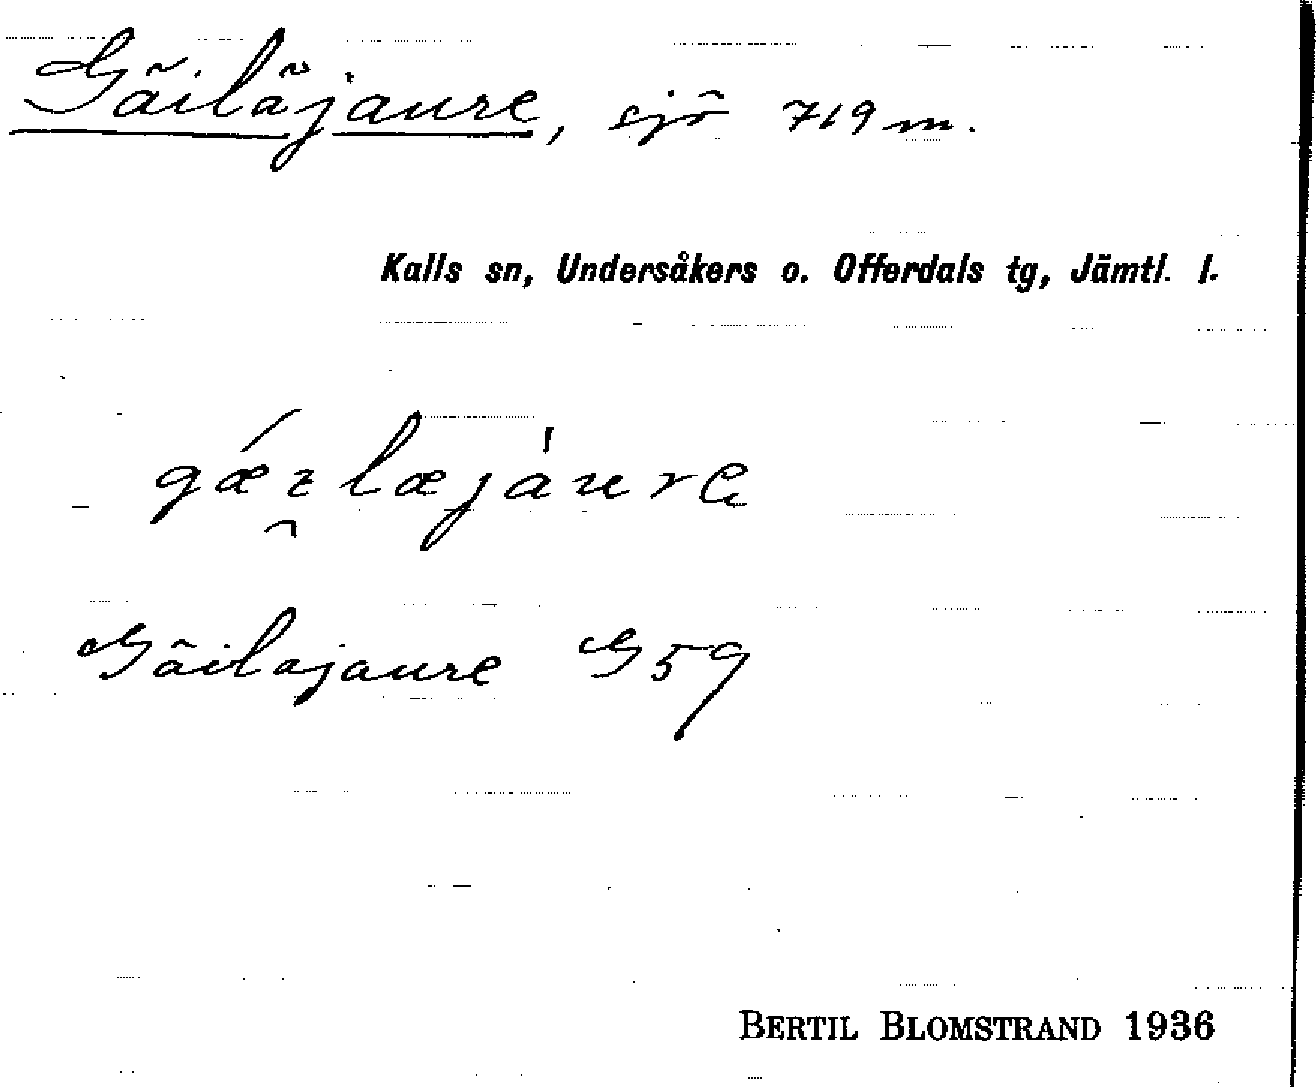 Gäiläjaure, sjö 719 m.
Kalls sn, Undersåkers o. Offerdals tg, Jämtl. l.
Gäilajaure G 59
BERTIL BLOMSTRAND 1936